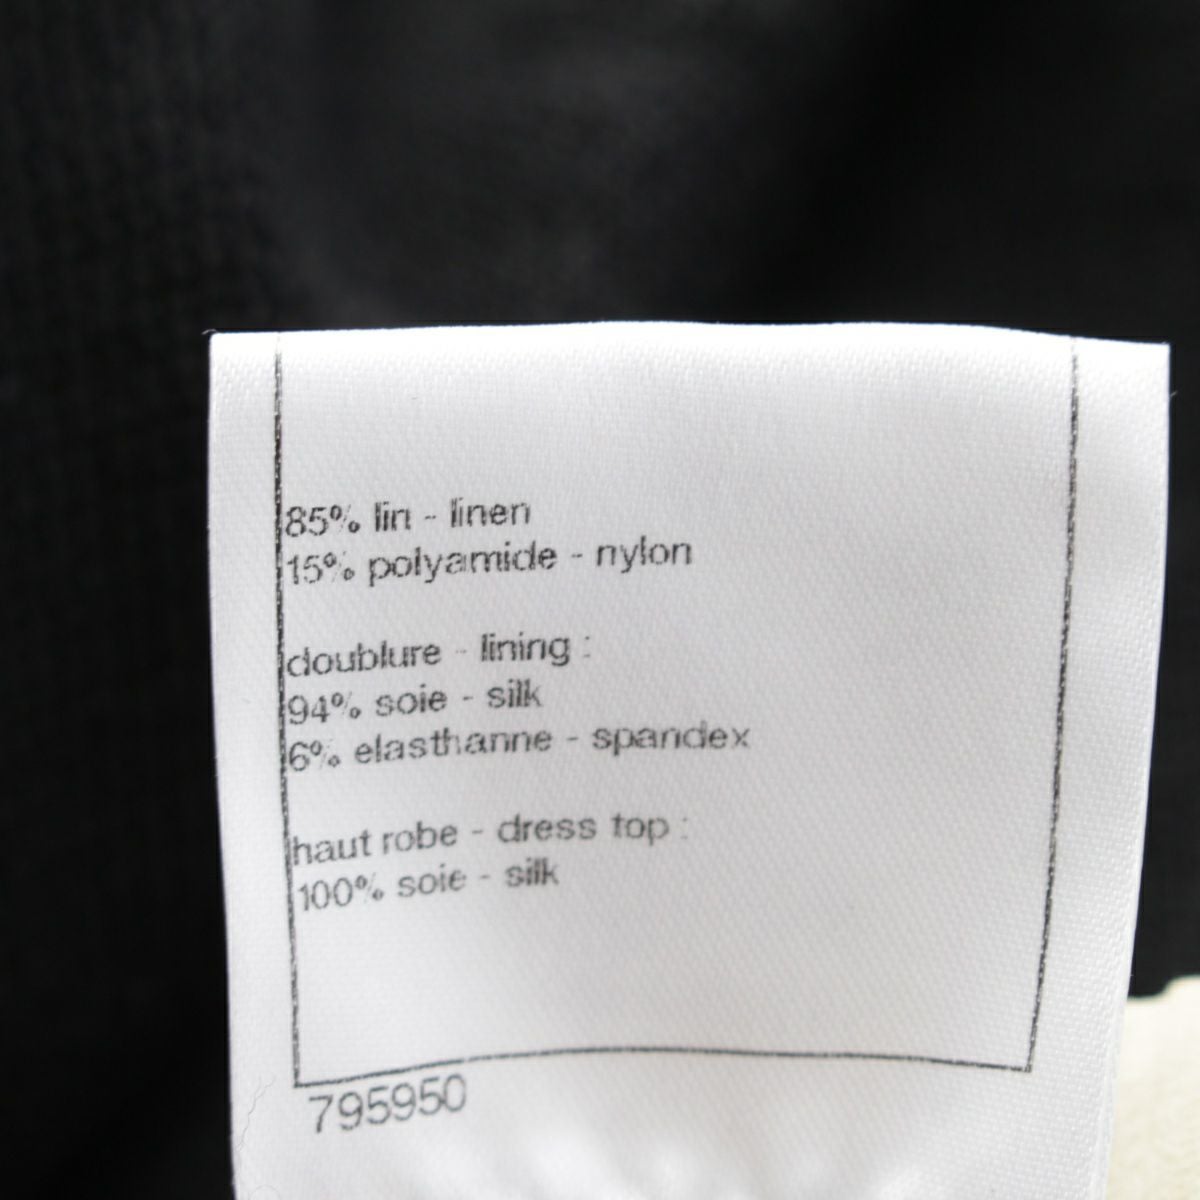 85% lin - linen
15% polyamide - nylon
doublure - lining :
94% soie - silk
6% elasthanne - spandex
haut robe - dress top :
100% soie - silk
795950